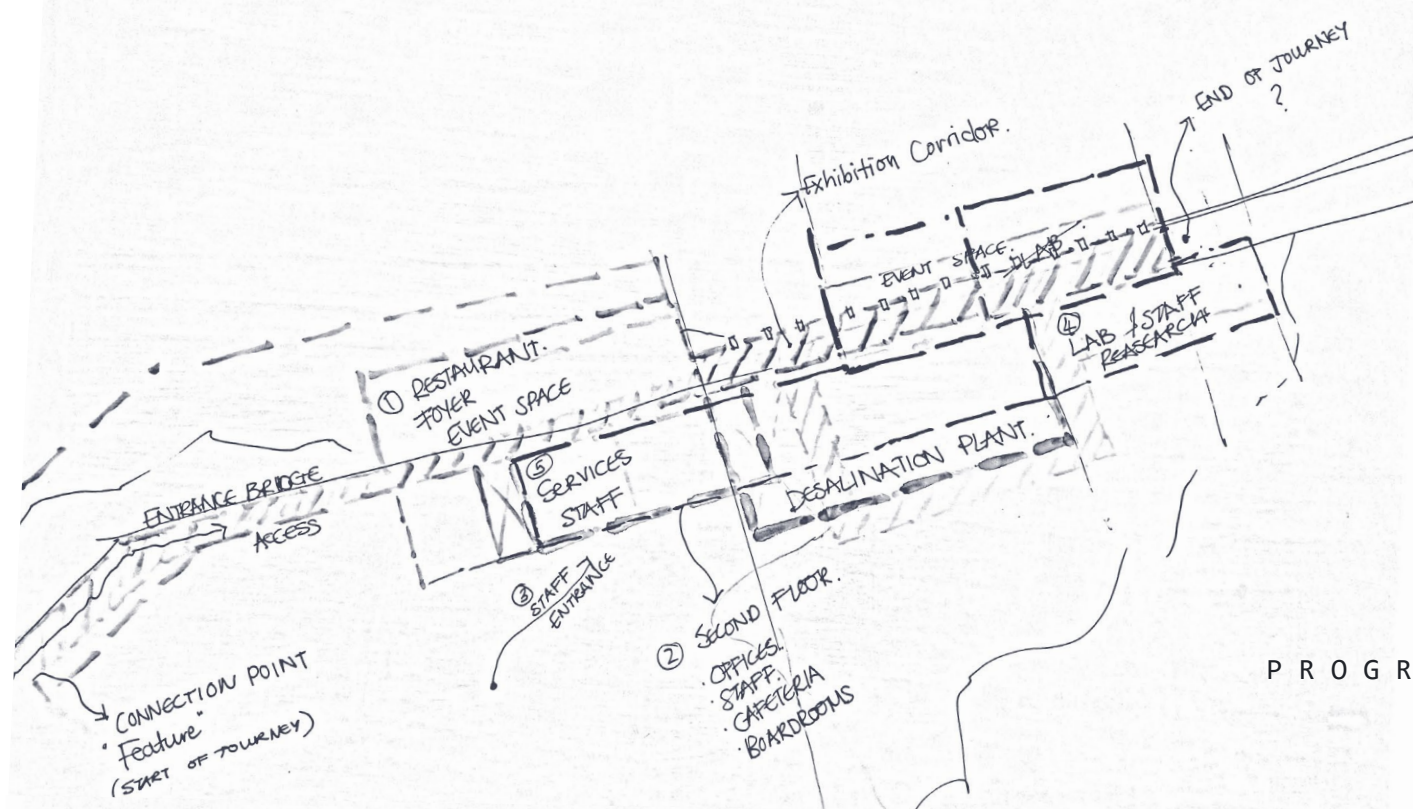 END OF JOURNEY
?
Exhibition Corridor.
EVENT SPACE.
LAB
① RESTAURANT.
FOYER
EVENT SPACE
④
LAB / STAFF
REASEARCH
⑤
SERVICES
STAFF
DESALINATION PLANT.
ENTRANCE BRIDGE
ACCESS
③ STAFF
ENTRANCE
② SECOND FLOOR.
OFFICES.
· STAFF.
· CAFETERIA
· BOARDROOMS
CONNECTION POINT
"Feature"
(START OF JOURNEY)
PROGR